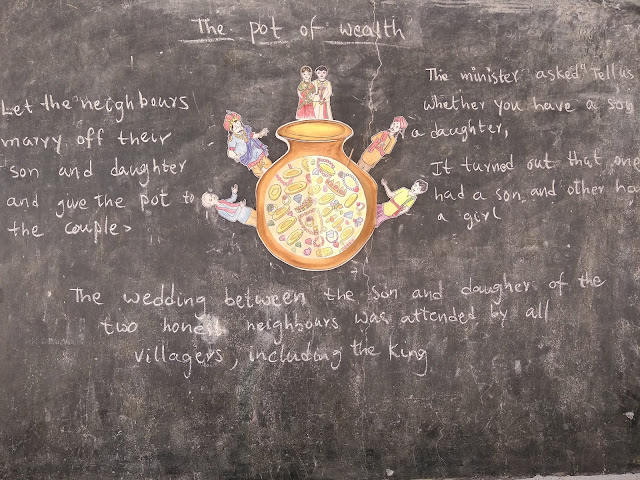 The pot of wealth
Let the neighbours
marry off their
son and daughter
and give the pot to
the couple>
The minister asked "Tell us
whether you have a son
a daughter,
It turned out that one
had a son, and other ha
a girl
The wedding between the son and daugher of the
two honest neighbours was attended by all
villagers, including the King